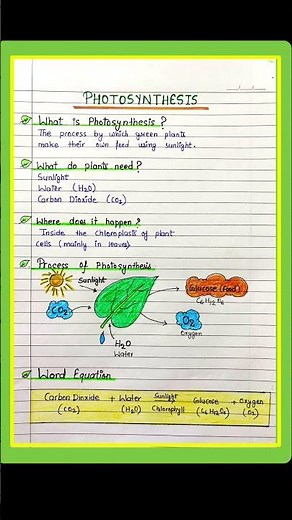 PHOTOSYNTHESIS
What is Photosynthesis?
The process by which green plants
make their own food using sunlight.
What do plants need?
Sunlight
Water (H₂O)
Carbon Dioxide (CO₂)
Where does it happen?
Inside the chloroplasts of plant
cells (mainly in leaves)
Process of Photosynthesis
Sunlight
Glucose (Food)
C₆H₁₂O₆
CO₂
O₂
Oxygen
H₂O
Water
Word Equation
Carbon Dioxide + Water Sunlight Glucose + Oxygen
(CO₂) (H₂O) Chlorophyll (C₆H₁₂O₆) (O₂)